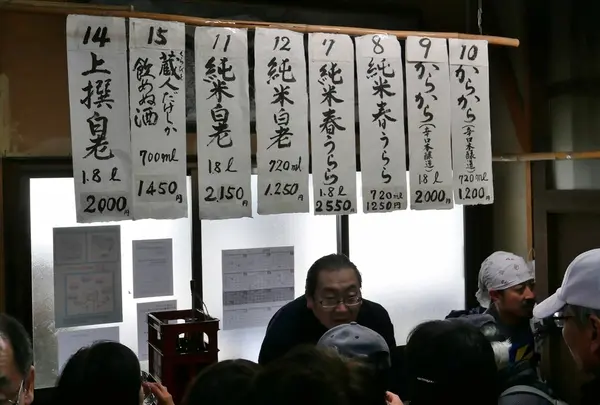 14
上撰白老
1.8ℓ
2000円
15
蔵人だけしか
飲めぬ酒
700ml
1450円
11
純米白老
1.8ℓ
2,150円
12
純米白老
720ml
1,250円
7
純米春うらら
1.8ℓ
2550円
8
純米春うらら
720ml
1250円
9
からから
(辛口本醸造)
1.8ℓ
2000円
10
からから
(辛口本醸造)
720ml
1,200円